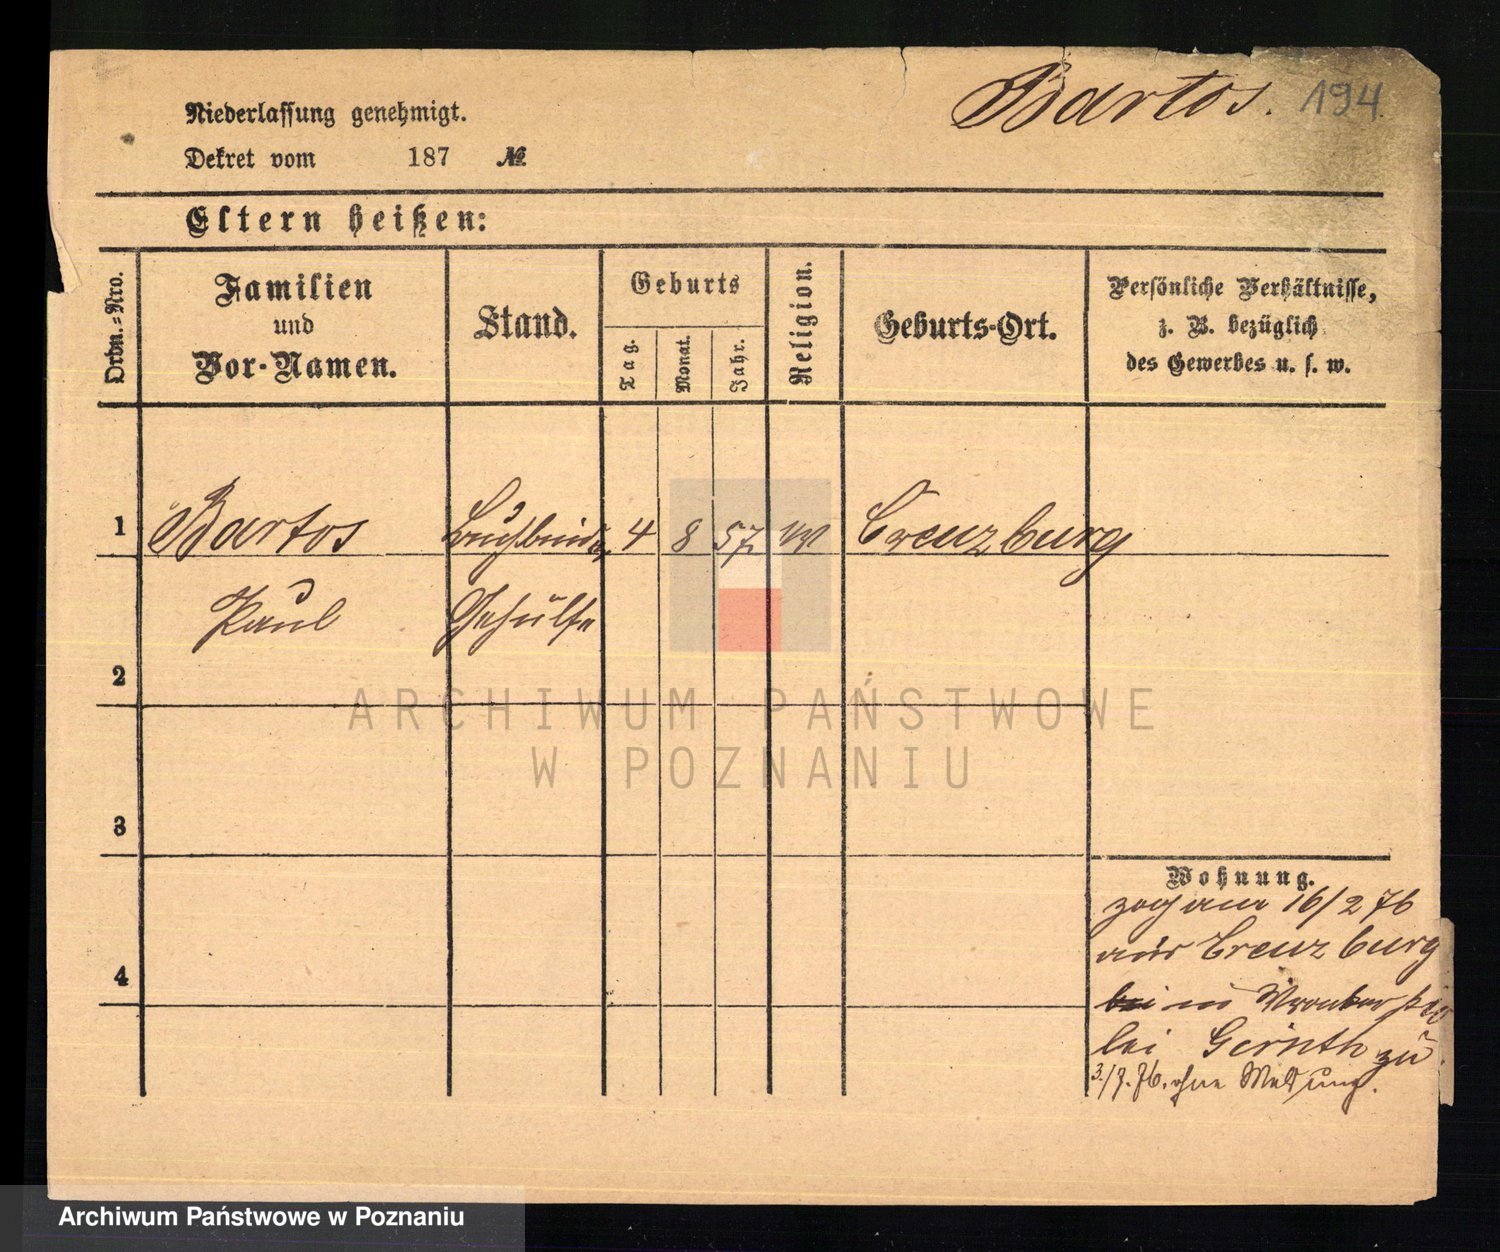 Bartos. 194.
Niederlassung genehmigt.
Dekret vom 187 №
Eltern heißen:
Ordn.-Nro.
Familien
und
Vor-Namen.
Stand.
Geburts
Tag.
Monat.
Jahr.
Religion.
Geburts-Ort.
Persönliche Verhältnisse,
z. B. bezüglich
des Gewerbes u. s. w.
1 Bartos Buchbinder 4 8 57 Creuzburg
Paul Gehülfe
2
3
4
Wohnung.
zog am 16/2 76
aus Creuzburg
bei in
bei Gernth zu
3./7.76. ohne Meldung.
ARCHIWUM PAŃSTWOWE
W POZNANIU
Archiwum Państwowe w Poznaniu